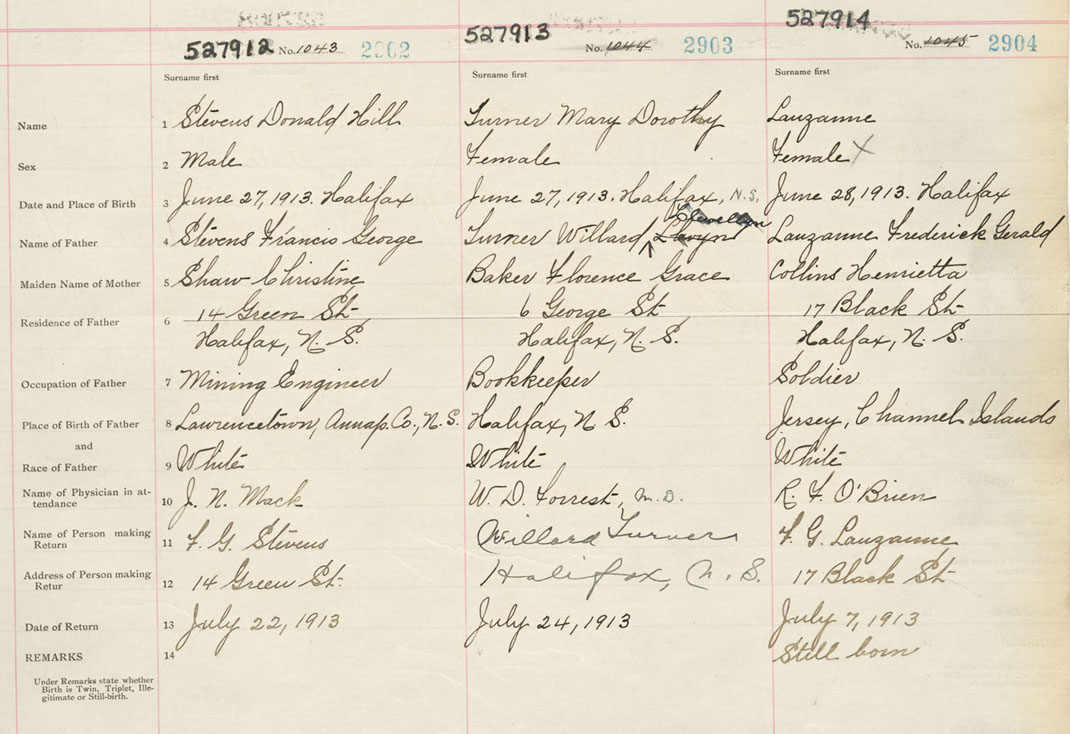 527912 No. 1043 2902
527913 No. 1044 2903
527914 No. 1045 2904
Surname first Surname first Surname first
Name 1 Stevens Donald Hill Turner Mary Dorothy Lauzanne
Sex 2 Male Female Female X
Date and Place of Birth 3 June 27, 1913. Halifax June 27, 1913. Halifax, N.S. June 28, 1913. Halifax
Llewellyn
Name of Father 4 Stevens Francis George Turner Willard Lauzanne Frederick Gerald
Maiden Name of Mother 5 Shaw Christine Baker Florence Grace Collins Henrietta
Residence of Father 6 14 Green St. 6 George St 17 Black St.
Halifax, N. S. Halifax, N. S. Halifax, N. S.
Occupation of Father 7 Mining Engineer Bookkeeper Soldier
Place of Birth of Father 8 Lawrencetown, Annap. Co., N. S. Halifax, N S. Jersey, Channel Islands
and
Race of Father 9 White White White
Name of Physician in at-
tendance 10 J. N. Mack W. D. Forrest, M.D. R. F. O'Brien
Name of Person making
Return 11 F. G. Stevens Willard Turner F. G. Lauzanne
Address of Person making
Retur 12 14 Green St. Halifax, N. S. 17 Black St.
Date of Return 13 July 22, 1913 July 24, 1913 July 7, 1913
REMARKS 14 Still born
Under Remarks state whether
Birth is Twin, Triplet, Ille-
gitimate or Still-birth.